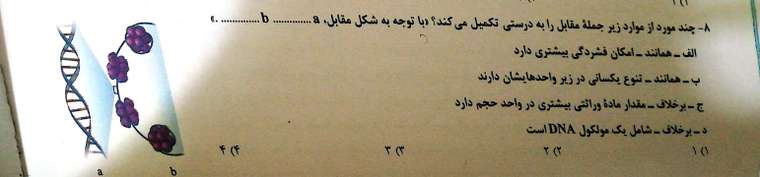 ۸- چند مورد از موارد زیر جملهٔ مقابل را به درستی تکمیل می کند؟ «با توجه به شکل مقابل، a ............. b ............. .»
الف ـ همانند ـ امکان فشردگی بیشتری دارد
ب ـ همانند ـ تنوع یکسانی در زیر واحدهایشان دارند
ج ـ برخلاف ـ مقدار مادهٔ وراثتی بیشتری در واحد حجم دارد
د ـ برخلاف ـ شامل یک مولکول DNA است
۱) ۱ ۲) ۲ ۳) ۳ ۴) ۴
a b